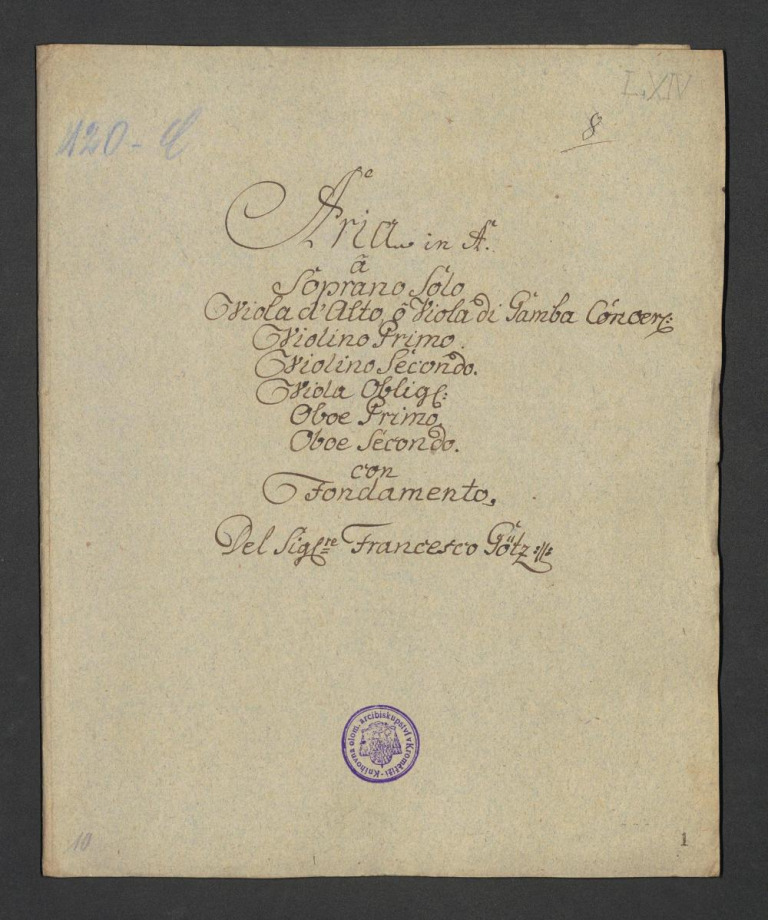 L.XIV
420-
8
Aria in A.
â
Soprano Solo
Viola d'Alto, ô Viola di Gamba Concer:
Violino Primo.
Violino Secondo.
Viola Oblig:
Oboe Primo,
Oboe Secondo.
con
Fondamento,
Del Sig:re Francesco Götz
Knihovna olom. arcibiskupství v Kroměříži
10
1